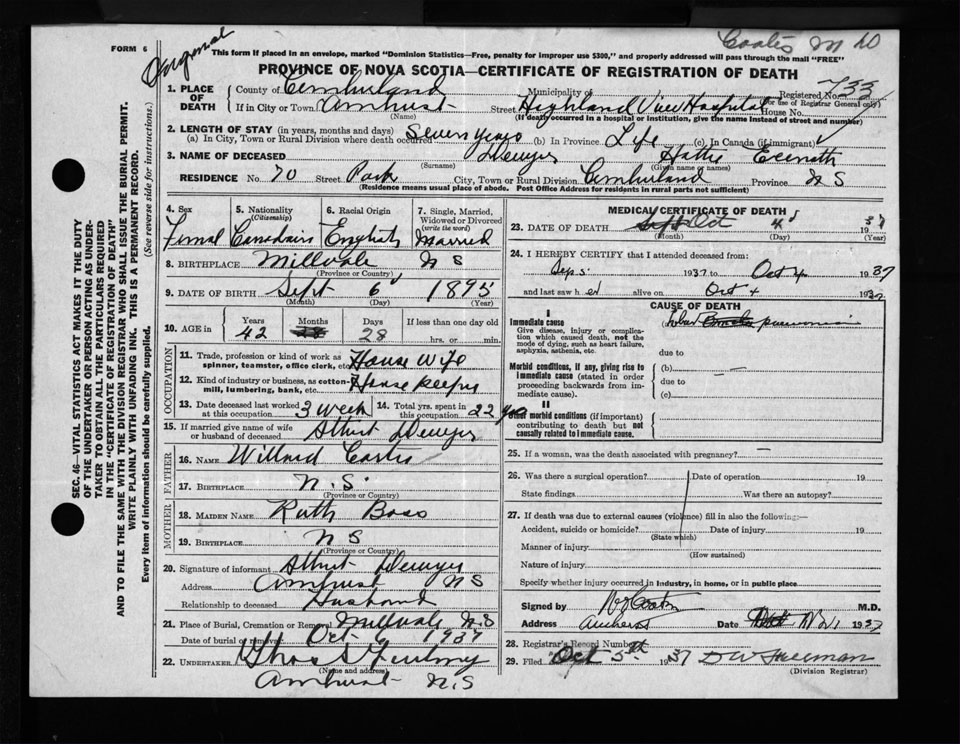 FORM 6
Original
Coates M D
This form if placed in an envelope, marked "Dominion Statistics—Free, penalty for improper use $300," and properly addressed will pass through the mail "FREE"
PROVINCE OF NOVA SCOTIA—CERTIFICATE OF REGISTRATION OF DEATH
Registered No. 733
(For use of Registrar General only)
1. PLACE OF DEATH
County of Cumberland Municipality of
If in City or Town Amherst Street Highland View Hospital House No.
(Name) (If death occurred in a hospital or institution, give the name instead of street and number)
2. LENGTH OF STAY (in years, months and days)
(a) In City, Town or Rural Division where death occurred Seven years (b) In Province Life (c). In Canada (if immigrant)
3. NAME OF DECEASED Hattie
(Surname) (Given name or names)
RESIDENCE No. 70 Street Park City, Town or Rural Division Cumberland Province N S
(Residence means usual place of abode. Post Office Address for residents in rural parts not sufficient)
4. Sex 5. Nationality 6. Racial Origin 7. Single, Married, Widowed or Divorced
(Citizenship) (write the word)
Femal Canadian English Married
8. BIRTHPLACE Millvale N S
(Province or Country)
9. DATE OF BIRTH Sept 6 1895
(Month) (Day) (Year)
10. AGE in Years Months Days If less than one day old
42 28 hrs. or min.
OCCUPATION
11. Trade, profession or kind of work as spinner, teamster, office clerk, etc. House Wife
12. Kind of industry or business, as cotton-mill, lumbering, bank, etc. House keeping
13. Date deceased last worked at this occupation 3 week 14. Total yrs. spent in this occupation 22 yrs
15. If married give name of wife or husband of deceased
FATHER
16. NAME Willard
17. BIRTHPLACE N.S.
(Province or Country)
MOTHER
18. MAIDEN NAME Ruth Boss
19. BIRTHPLACE N S
(Province or Country)
20. Signature of informant
Address Amherst N S
Relationship to deceased Husband
21. Place of Burial, Cremation or Removal Millvale N.S
Date of burial or removal Oct 6 1937
22. UNDERTAKER
(Name and address)
Amherst N.S
MEDICAL CERTIFICATE OF DEATH
23. DATE OF DEATH Sept Oct 4 1937
(Month) (Day) (Year)
24. I HEREBY CERTIFY that I attended deceased from:
Sep. 5 1937 to Oct 4 1937
and last saw h er alive on Oct 4 1937
CAUSE OF DEATH
I
Immediate cause (a) Lobar pneumonia
Give disease, injury or complication which caused death, not the mode of dying, such as heart failure, asphyxia, asthenia, etc. due to
Morbid conditions, if any, giving rise to immediate cause (stated in order proceeding backwards from immediate cause). (b) due to (c)
II
Other morbid conditions (if important) contributing to death but not causally related to immediate cause.
25. If a woman, was the death associated with pregnancy? —
26. Was there a surgical operation? Date of operation 19
State findings Was there an autopsy?
27. If death was due to external causes (violence) fill in also the following:—
Accident, suicide or homicide? Date of injury 19
(State which)
Manner of injury
(How sustained)
Nature of injury
Specify whether injury occurred in industry, in home, or in public place
Signed by M.D.
Address Amherst Date 1937
28. Registrar's Record Number
29. Filed Oct 5th 1937 D W Freeman
(Division Registrar)
SEC. 46—VITAL STATISTICS ACT MAKES IT THE DUTY
OF THE UNDERTAKER OR PERSON ACTING AS UNDERTAKER TO OBTAIN ALL THE PARTICULARS REQUIRED
IN THE "CERTIFICATE OF REGISTRATION OF DEATH"
AND TO FILE THE SAME WITH THE DIVISION REGISTRAR WHO SHALL ISSUE THE BURIAL PERMIT.
WRITE PLAINLY WITH UNFADING INK. THIS IS A PERMANENT RECORD.
Every item of information should be carefully supplied. (See reverse side for instructions.)